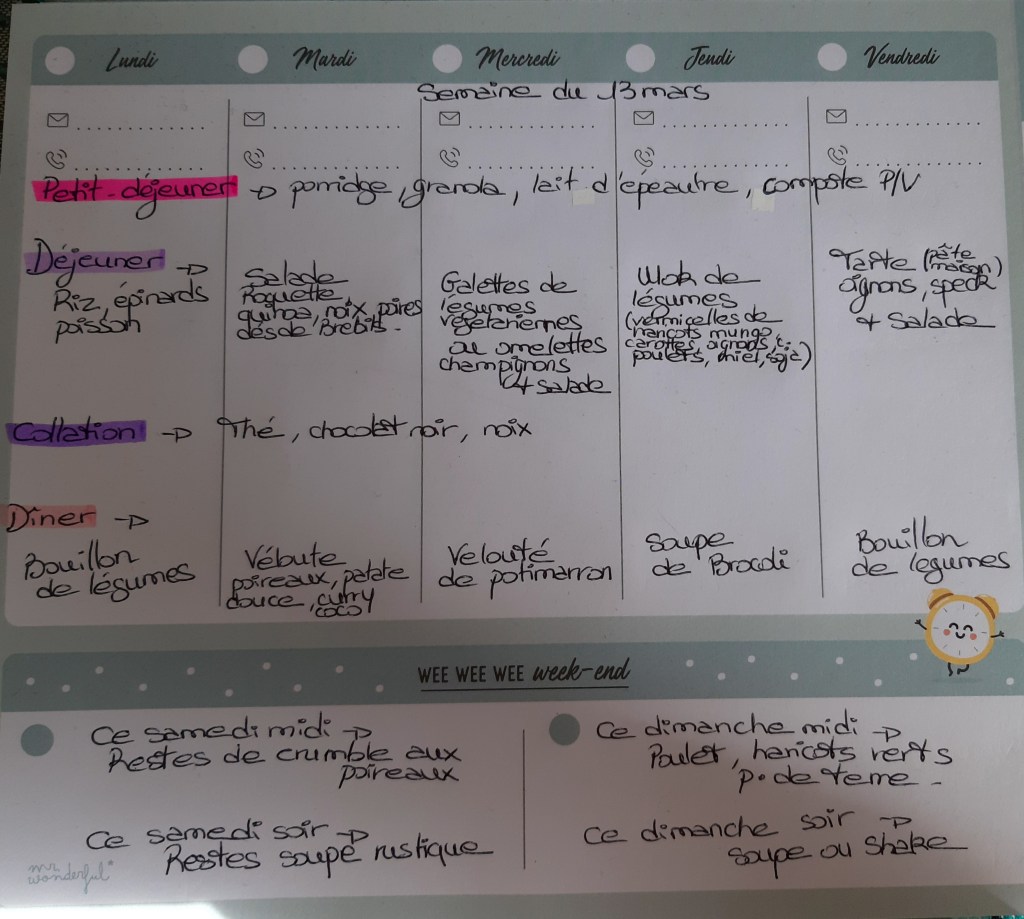 Lundi
Mardi
Mercredi
Jeudi
Vendredi
Semaine du 13 mars
Petit-déjeuner → porridge, granola, lait d'épeautre, compote P/V
Déjeuner →
Riz, épinards
poisson
Salade
Roquette
quinoa, noix, poires
dés de Brebis.
Galettes de
légumes
végétariennes
ou omelettes
champignons
+ salade
Wok de
légumes
(vermicelles de
haricots mungo
carottes, oignons,
poulets, miel, soja)
Tarte (pâte
maison)
oignons, speck
+ salade
Collation → Thé, chocolat noir, noix
Dîner →
Bouillon
de légumes
Véloute
poireaux, patate
douce, curry
coco
Velouté
de potimarron
Soupe
de Brocoli
Bouillon
de légumes
WEE WEE WEE week-end
Ce samedi midi →
Restes de crumble aux
poireaux
Ce dimanche midi →
Poulet, haricots verts
p. de terre.
Ce samedi soir →
Restes soupe rustique
Ce dimanche soir →
soupe ou shake
mr
wonderful*